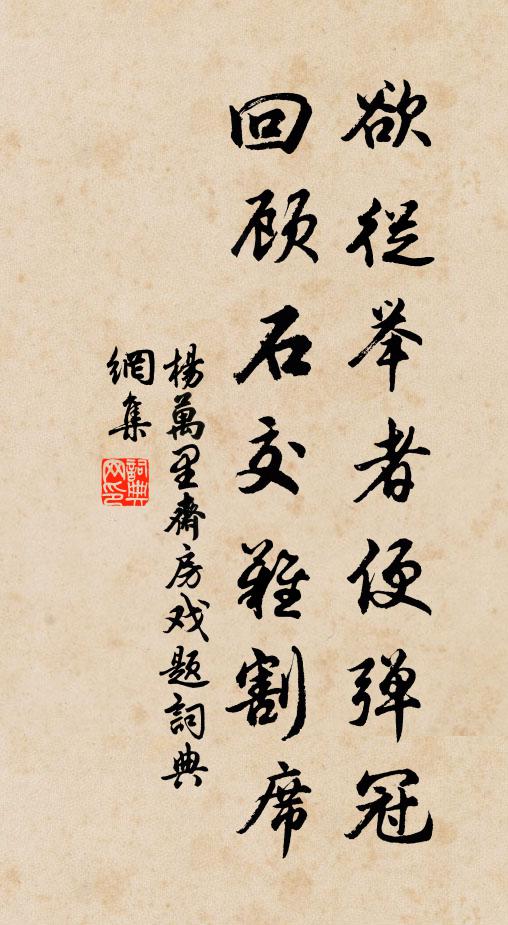 欲從举者便弹冠
回顾石交難割席
楊萬里齋房戏题詞典
網集
詞典網印